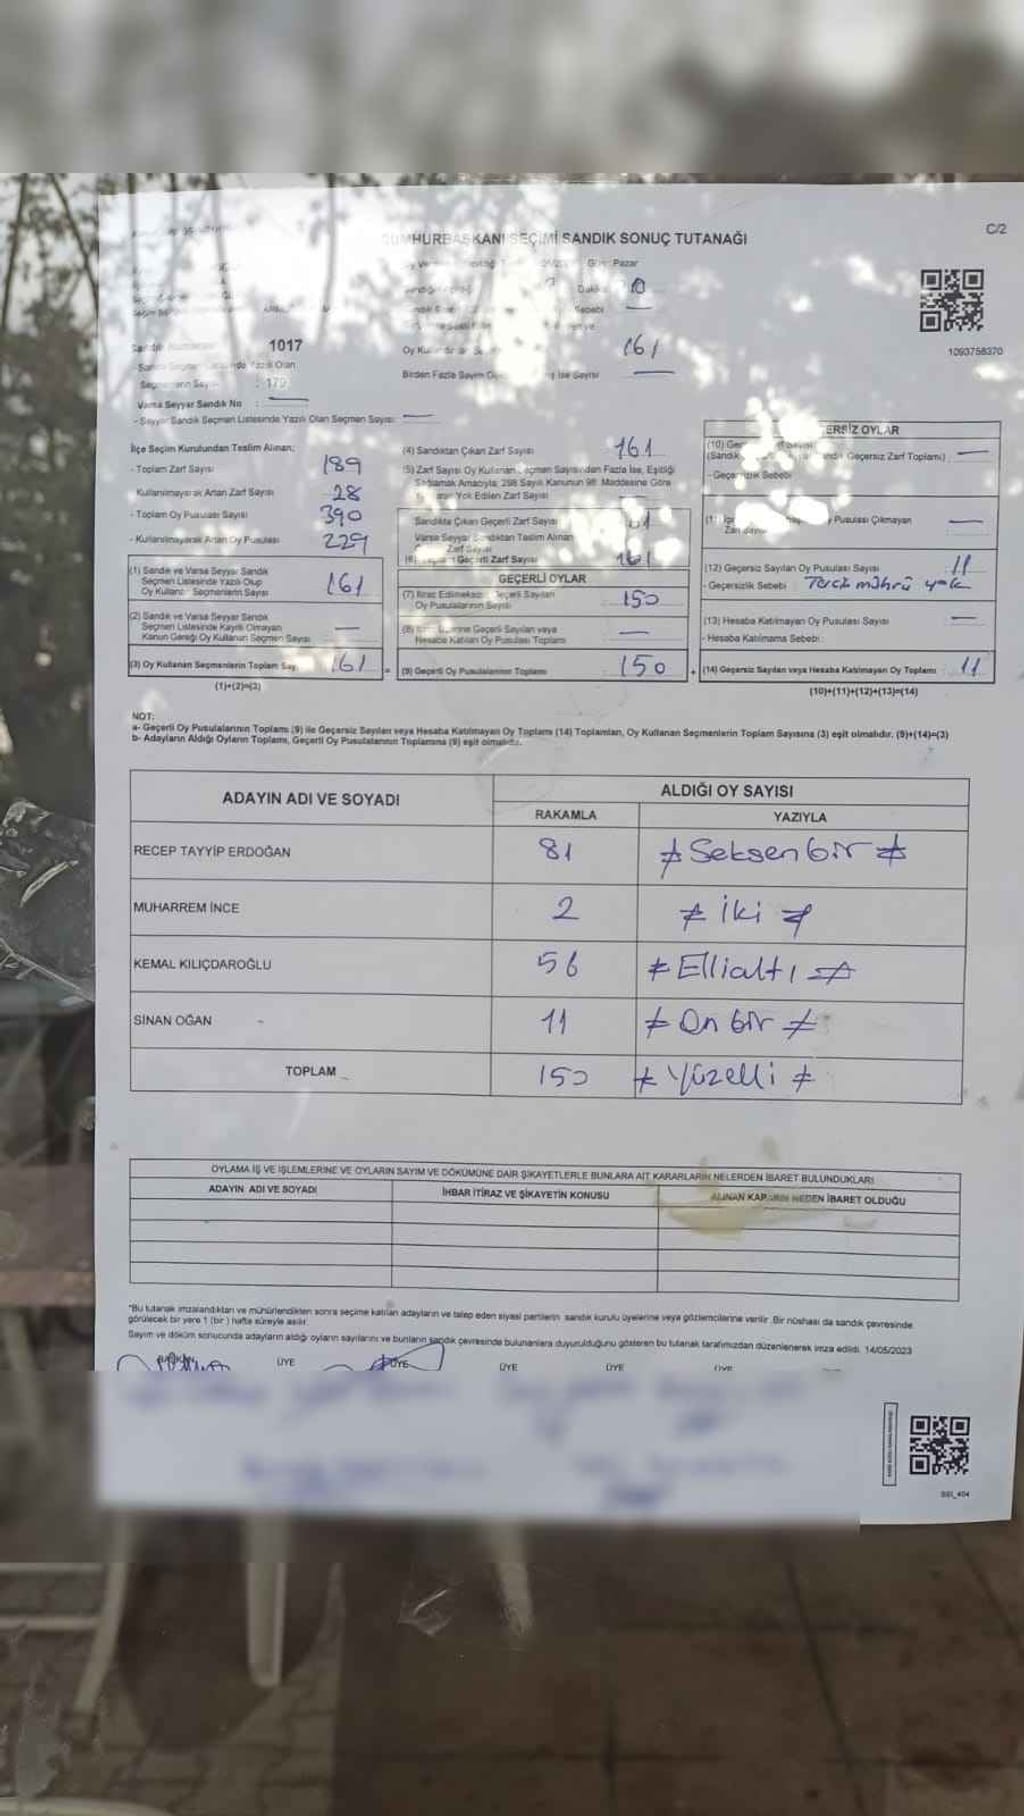 C/2
CUMHURBAŞKANI SEÇİMİ SANDIK SONUÇ TUTANAĞI
Pazar
10
1017
1093758370
Oy 161
Birden Fazla Sayım
: 179
Varsa Seyyar Sandık No : —
- Seyyar Sandık Seçmen Listesinde Yazılı Olan Seçmen Sayısı: —
İlçe Seçim Kurulundan Teslim Alınan;
- Toplam Zarf Sayısı 189
Kullanılmayarak Artan Zarf Sayısı 28
- Toplam Oy Pusulası Sayısı 390
- Kullanılmayarak Artan Oy Pusulası 229
(1) Sandık ve Varsa Seyyar Sandık
Seçmen Listesinde Yazılı Olup
Oy Kullanan Seçmenlerin Sayısı 161
(2) Sandık ve Varsa Seyyar Sandık
Seçmen Listesinde Kayıtlı Olmayan
Kanun Gereği Oy Kullanan Seçmen Sayısı —
(3) Oy Kullanan Seçmenlerin Toplam Say 161
(1)+(2)=(3)
(4) Sandıktan Çıkan Zarf Sayısı 161
(5) Zarf Sayısı Oy Kullanan Seçmen Sayısından Fazla İse, Eşitliği
Sağlamak Amacıyla, 298 Sayılı Kanunun 98. Maddesine Göre
Yok Edilen Zarf Sayısı
Sandıkta Çıkan Geçerli Zarf Sayısı
Varsa Seyyar Sandıktan Teslim Alınan
Zarf Sayısı
(6) Geçerli Zarf Sayısı 161
GEÇERLİ OYLAR
(7) İtiraz Edilmeksizin Geçerli Sayılan
Oy Pusulalarının Sayısı 150
(8) Geçerli Sayılan veya
Hesaba Katılan Oy Pusulası Toplamı —
(9) Geçerli Oy Pusulalarının Toplamı 150
+
OYLAR
(10)
(Sandık Geçersiz Zarf Toplamı) —
- Geçersizlik Sebebi
Pusulası Çıkmayan —
(12) Geçersiz Sayılan Oy Pusulası Sayısı 11
- Geçersizlik Sebebi : Tercih mührü yok
(13) Hesaba Katılmayan Oy Pusulası Sayısı —
- Hesaba Katılmama Sebebi :
(14) Geçersiz Sayılan veya Hesaba Katılmayan Oy Toplamı : 11
(10)+(11)+(12)+(13)=(14)
NOT:
a- Geçerli Oy Pusulalarının Toplamı (9) ile Geçersiz Sayılan veya Hesaba Katılmayan Oy Toplamı (14) Toplamları, Oy Kullanan Seçmenlerin Toplam Sayısına (3) eşit olmalıdır. (9)+(14)=(3)
b- Adayların Aldığı Oyların Toplamı, Geçerli Oy Pusulalarının Toplamına (9) eşit olmalıdır.
ADAYIN ADI VE SOYADI
ALDIĞI OY SAYISI
RAKAMLA YAZIYLA
RECEP TAYYİP ERDOĞAN 81 Seksen bir
MUHARREM İNCE 2 İki
KEMAL KILIÇDAROĞLU 56 Ellialtı
SİNAN OĞAN 11 On bir
TOPLAM 150 Yüzelli
OYLAMA İŞ VE İŞLEMLERİNE VE OYLARIN SAYIM VE DÖKÜMÜNE DAİR ŞİKAYETLERLE BUNLARA AİT KARARLARIN NELERDEN İBARET BULUNDUKLARI
ADAYIN ADI VE SOYADI İHBAR İTİRAZ VE ŞİKAYETİN KONUSU ALINAN KARARIN NEDEN İBARET OLDUĞU
*Bu tutanak imzalandıktan ve mühürlendikten sonra seçime katılan adayların ve talep eden siyasi partilerin sandık kurulu üyelerine veya gözlemcilerine verilir. Bir nüshası da sandık çevresinde
görülecek bir yere 1 (bir) hafta süreyle asılır.
Sayım ve döküm sonucunda adayların aldığı oyların sayılarını ve bunların sandık çevresinde bulunanlara duyurulduğunu gösteren bu tutanak tarafımızdan düzenlenerek imza edildi. 14/05/2023
BAŞKAN ÜYE ÜYE ÜYE ÜYE ÜYE